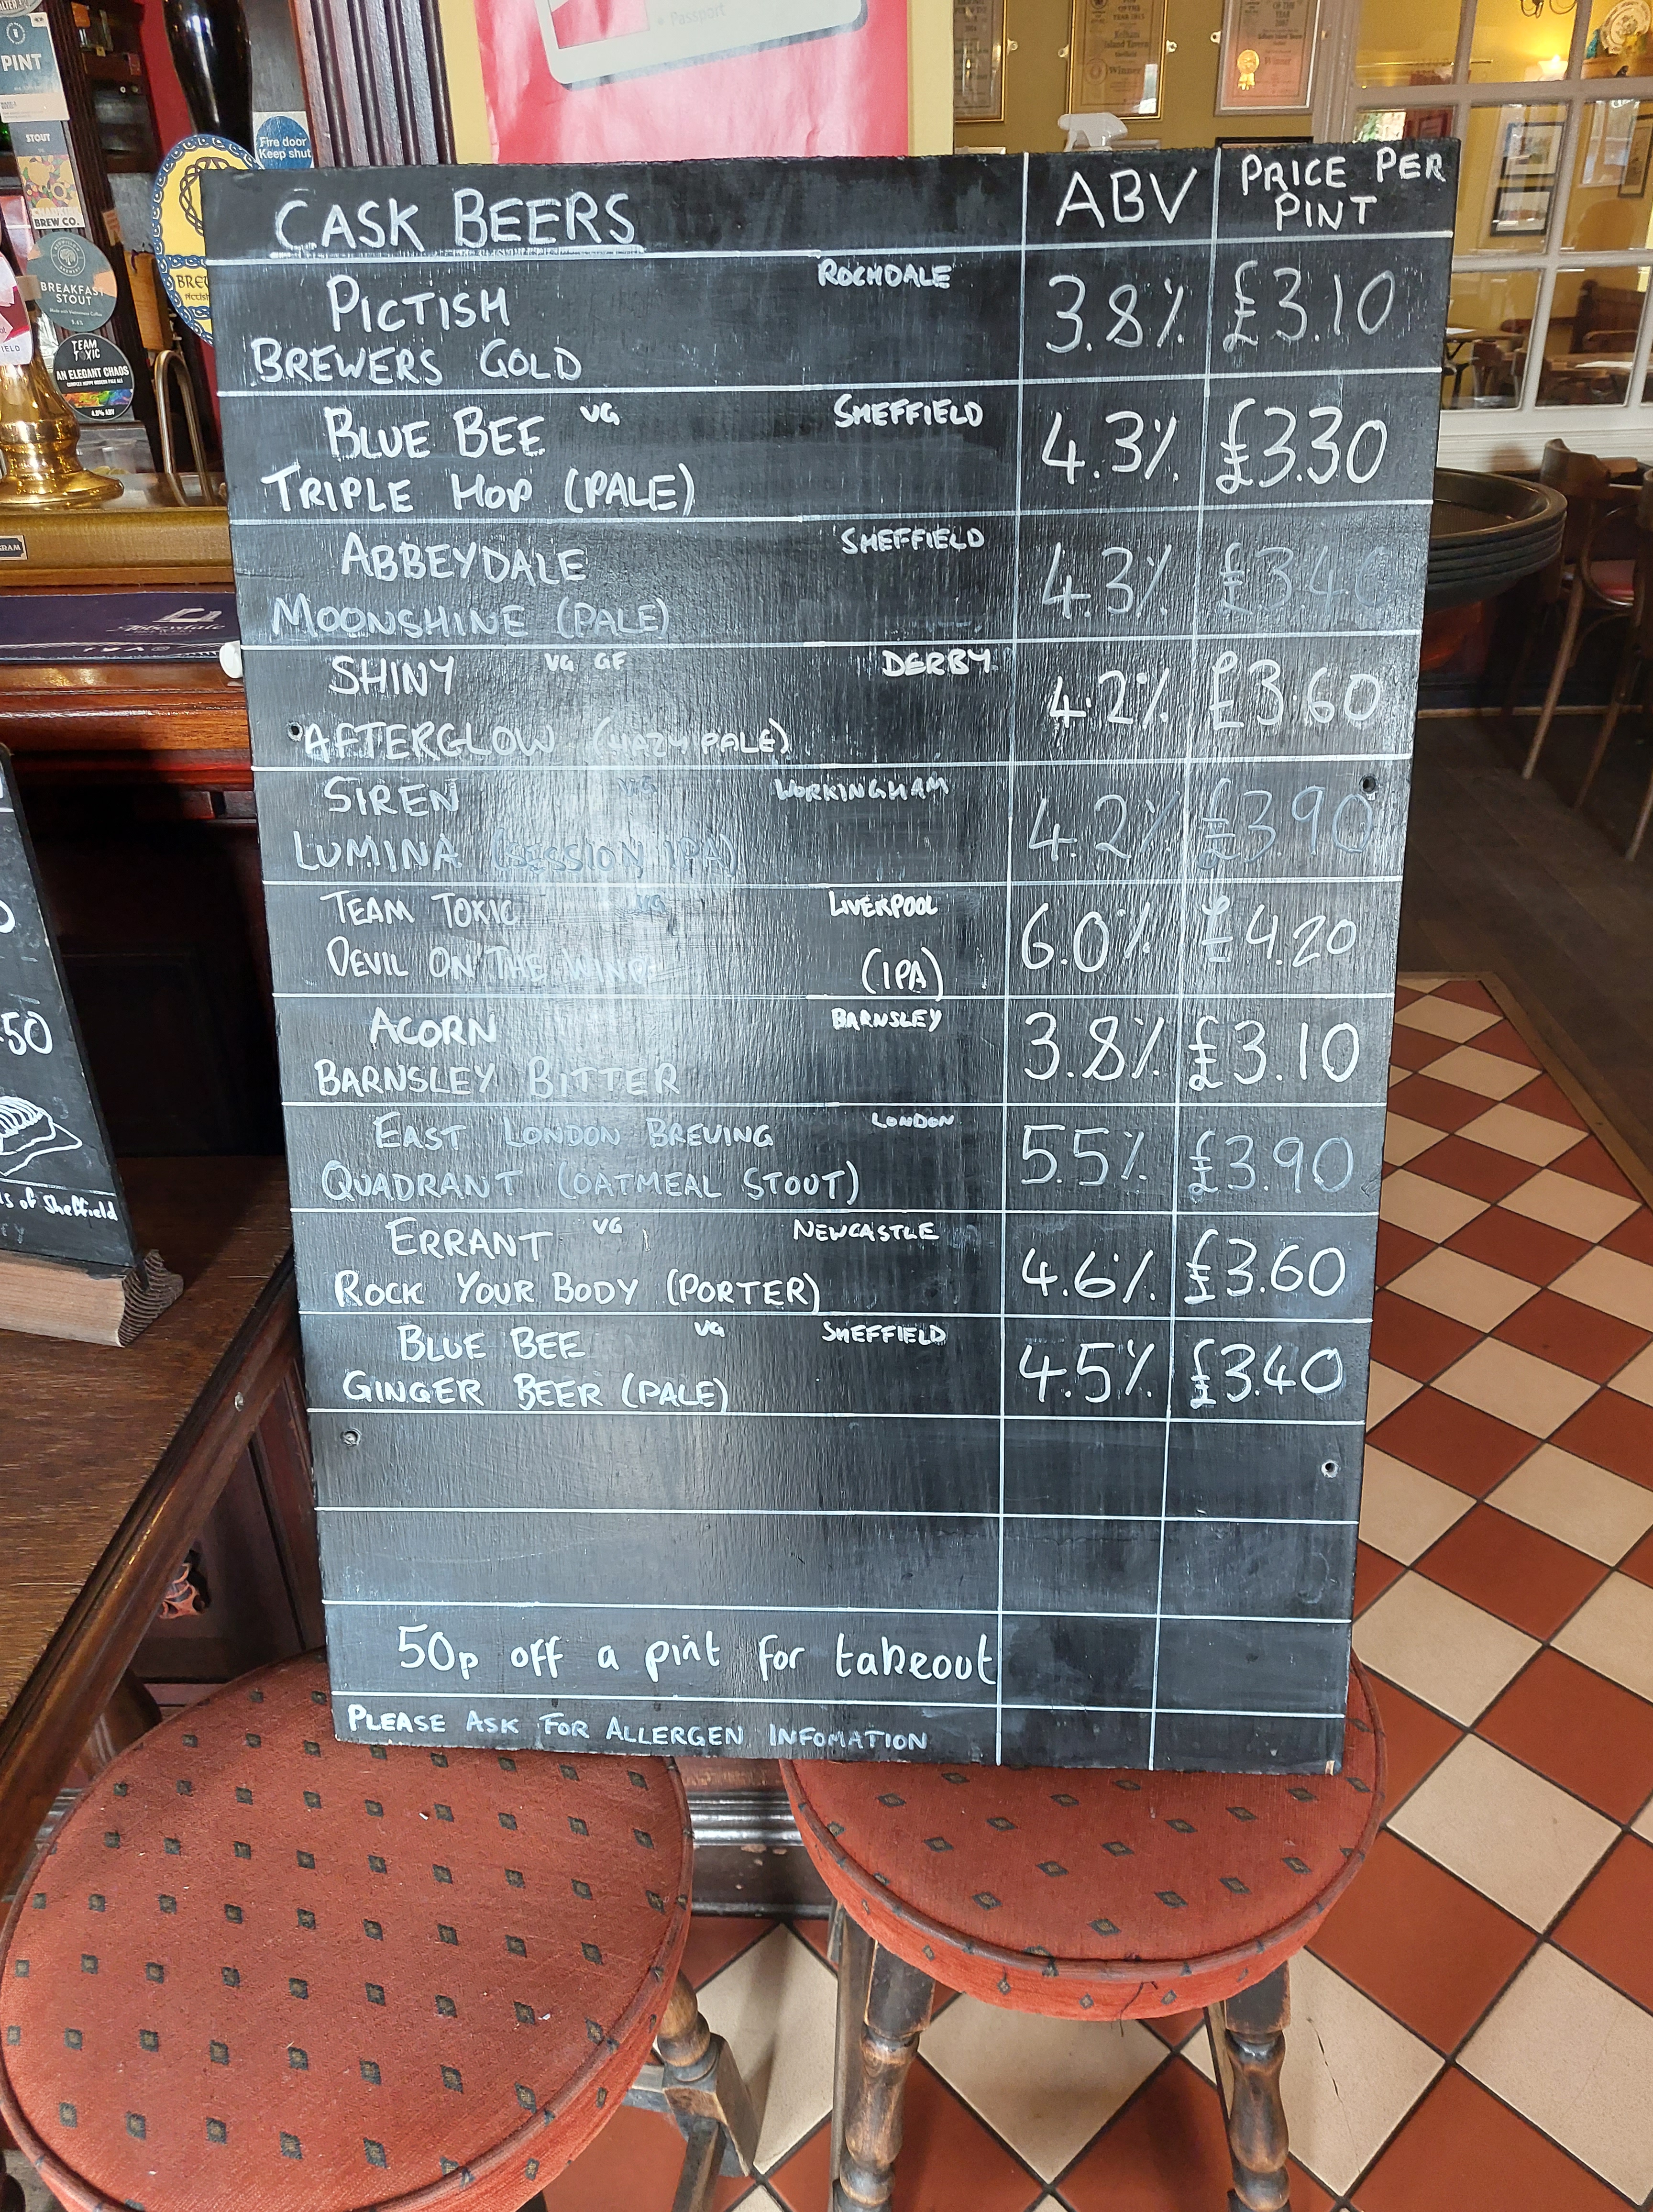 • Passport
PINT
STOUT
BREW CO.
BREAKFAST
STOUT
TEAM
TOXIC
AN ELEGANT CHAOS
Fire door
Keep shut
Kelham
Island Tavern
Winner
CASK BEERS ABV PRICE PER
PINT
PICTISH ROCHDALE 3.8% £3.10
BREWERS GOLD
BLUE BEE VG SHEFFIELD 4.3% £3.30
TRIPLE HOP (PALE)
ABBEYDALE SHEFFIELD 4.3% £3.40
MOONSHINE (PALE)
SHINY VG GF DERBY 4.2% £3.60
AFTERGLOW (HAZY PALE)
SIREN VG WORKINGHAM 4.2% £3.90
LUMINA (SESSION IPA)
TEAM TOXIC VG LIVERPOOL 6.0% £4.20
DEVIL ON THE WIND (IPA)
ACORN BARNSLEY 3.8% £3.10
BARNSLEY BITTER
EAST LONDON BREWING LONDON 5.5% £3.90
QUADRANT (OATMEAL STOUT)
ERRANT VG NEWCASTLE 4.6% £3.60
ROCK YOUR BODY (PORTER)
BLUE BEE VG SHEFFIELD 4.5% £3.40
GINGER BEER (PALE)
50p off a pint for takeout
PLEASE ASK FOR ALLERGEN INFOMATION
50
of Sheffield